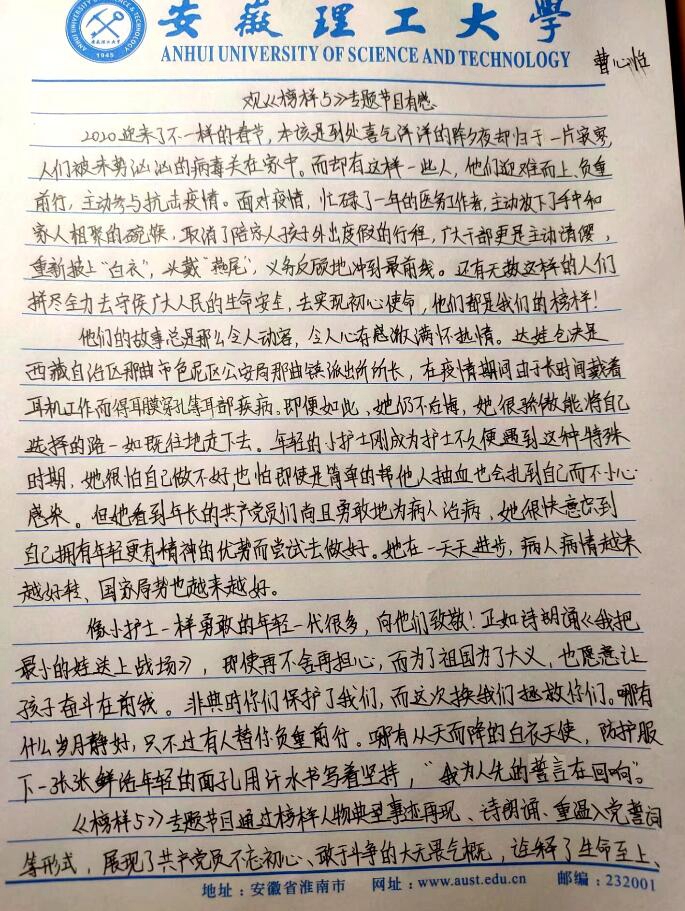 安徽理工大学
ANHUI UNIVERSITY OF SCIENCE AND TECHNOLOGY
ANHUI UNIVERSITY OF SCIENCE & TECHNOLOGY
安徽理工大学
1945
曹心怡
观《榜样5》专题节目有感
2020迎来了不一样的春节,本该是到处喜气洋洋的除夕夜却归于一片寂寥,
人们被来势汹汹的病毒关在家中。而却有这样一些人,他们迎难而上、负重
前行,主动参与抗击疫情。面对疫情,忙碌了一年的医务工作者,主动放下了手中和
家人相聚的碗筷,取消了陪家人孩子外出度假的行程,广大干部更是主动请缨,
重新披上“白衣”,头戴“燕尾”,义务反顾地冲到最前线。还有无数这样的人们
拼尽全力去守候广大人民的生命安全,去实现初心使命,他们都是我们的榜样!
他们的故事总是那么令人动容,令人心存感激满怀热情。达娃仓决是
西藏自治区那曲市色尼区公安局那曲镇派出所所长,在疫情期间由于长时间戴着
耳机工作而得耳膜穿孔等耳部疾病。即便如此,她仍不后悔,她很骄傲能将自己
选择的路一如既往地走下去。年轻的小护士刚成为护士不久便遇到这种特殊
时期,她很怕自己做不好,也怕即使是简单的帮他人抽血也会扎到自己而不小心
感染。但她看到年长的共产党员们尚且勇敢地为病人治病,她很快意识到
自己拥有年轻更有精神的优势而尝试去做好。她在一天天进步,病人病情越来
越好转、国家局势也越来越好。
像小护士一样勇敢的年轻一代很多,向他们致敬!正如诗朗诵《我把
最小的娃送上战场》,即使再不舍再担心,而为了祖国为了大义,也愿意让
孩子奋斗在前线。非典时你们保护了我们,而这次换我们拯救你们。哪有
什么岁月静好,只不过有人替你负重前行。哪有从天而降的白衣天使,防护服
下一张张鲜活年轻的面孔用汗水书写着坚持,“我为人先的誓言在回响”。
《榜样5》专题节目通过榜样人物典型事迹再现、诗朗诵、重温入党誓词
等形式,展现了共产党员不忘初心、敢于斗争的大无畏气概,诠释了生命至上、
地址:安徽省淮南市 网址:www.aust.edu.cn 邮编:232001